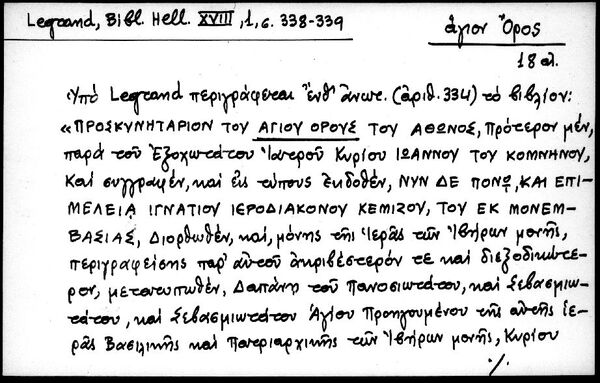 Legrand, Bibl. Hell. XVIII, 1, σ. 338-339
ἅγιον Ὄρος
18 αἰ.
Ὑπό Legrand περιγράφεται ἔνθ' ἄνωτ. (ἀριθ. 334) τό βιβλίον:
«ΠΡΟΣΚΥΝΗΤΑΡΙΟΝ ΤΟΥ ΑΓΙΟΥ ΟΡΟΥΣ ΤΟΥ ΑΘΩΝΟΣ, Πρότερον μέν,
παρά τοῦ Ἐξοχωτάτου Ἰατροῦ Κυρίου ΙΩΑΝΝΟΥ ΤΟΥ ΚΟΜΝΗΝΟΥ,
Καί συγγραφέν, καί εἰς τύπους ἐκδοθέν, ΝΥΝ ΔΕ ΠΟΝῼ, ΚΑΙ ΕΠΙ-
ΜΕΛΕΙᾼ ΙΓΝΑΤΙΟΥ ΙΕΡΟΔΙΑΚΟΝΟΥ ΚΕΜΙΖΟΥ, ΤΟΥ ΕΚ ΜΟΝΕΜ-
ΒΑΣΙΑΣ, Διορθωθέν, καί, μόνης τῆς Ἱερᾶς τῶν Ἰβήρων μονῆς,
περιγραφείσης παρ' αὐτοῦ ἀκριβέστερόν τε καί διεξοδικώτε-
ρον, μετατυπωθέν, Δαπάνῃ τοῦ Πανοσιωτάτου, καί Σεβασμιω-
τάτου, καί Σεβασμιωτάτου Ἁγίου Προηγουμένου τῆς αὐτῆς ἱε-
ρᾶς Βασιλικῆς καί Πατριαρχικῆς τῶν Ἰβήρων μονῆς, Κυρίου
./.